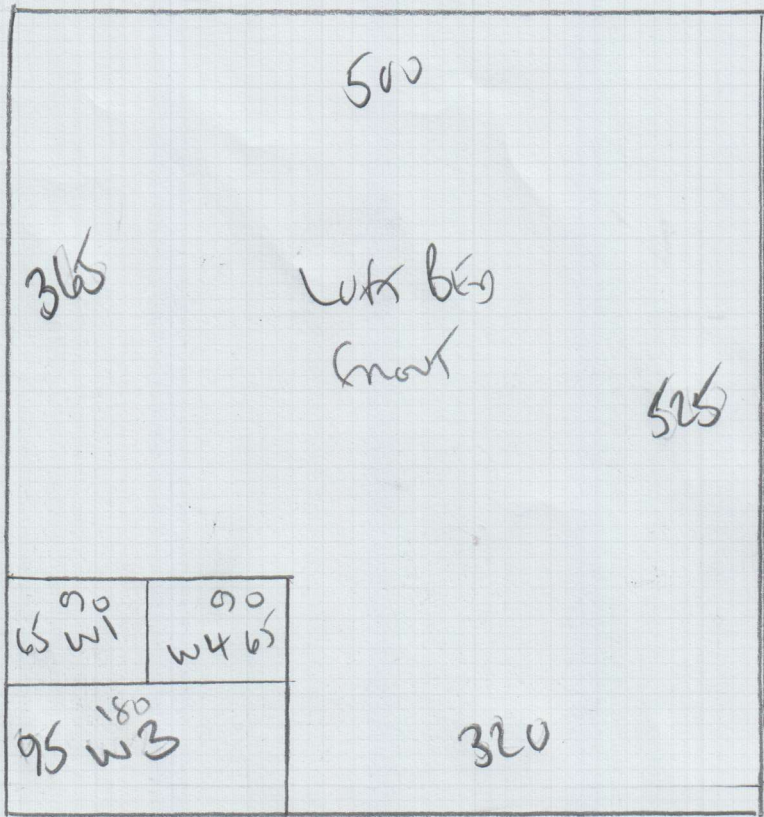 500
365
BED
FRONT
525
90 90
65 W1 W4 65
180
95 W3
320